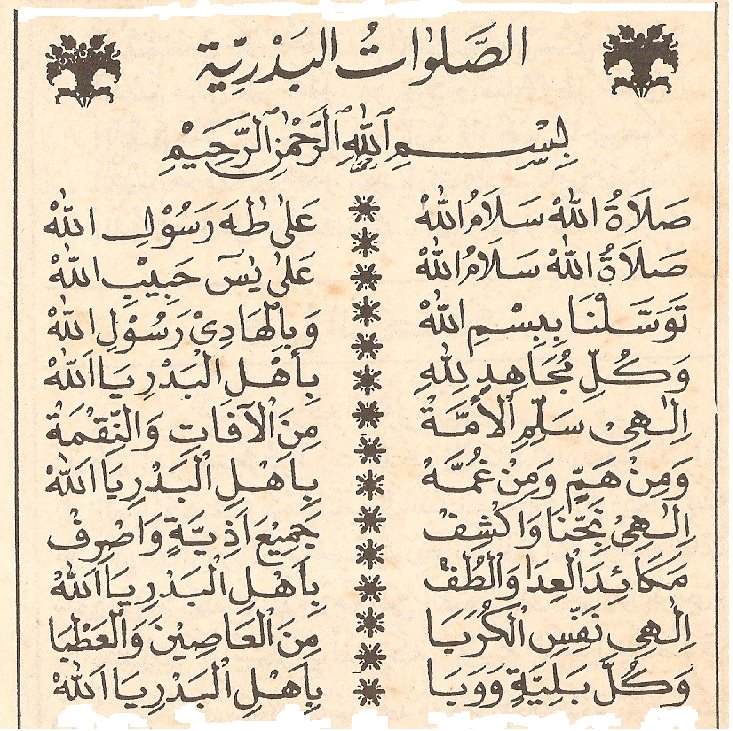 الصَّلَوٰاتُ البَدْرِيَّة
بِسْــــمِ اللّٰهِ الرَّحْمٰنِ الرَّحِيْمِ
صَلَاةُ اللّٰهْ سَلَامُ اللّٰهْ عَلٰى طٰهَ رَسُوْلِ اللّٰهْ
صَلَاةُ اللّٰهْ سَلَامُ اللّٰهْ عَلٰى يٰسٓ حَبِيْبِ اللّٰهْ
تَوَسَّلْنَا بِبِسْمِ اللّٰهْ وَبِالْهَادِيْ رَسُوْلِ اللّٰهْ
وَكُلِّ مُجَاهِدٍ لِلّٰهِ بِأَهْلِ الْبَدْرِ يَا اَللّٰهْ
اِلٰهِيْ سَلِّمِ الْأُمَّةْ مِنَ الْآفَاتِ وَالنِّقْمَةْ
وَمِنْ هَمٍّ وَمِنْ غُمَّهْ بِاَهْلِ الْبَدْرِ يَا اَللّٰهْ
اِلٰهِيْ نَجِّنَا وَاكْشِفْ جَمِيْعَ اَذِيَّةٍ وَاصْرِفْ
مَكَائِدَ الْعِدَا وَالْطُفْ بِاَهْلِ الْبَدْرِ يَا اَللّٰهْ
اِلٰهِيْ نَفِّسِ الْكُرَبَا مِنَ الْعَاصِيْنَ وَالْعَطْبَا
وَكُلَّ بَلِيَّةٍ وَوَبَا بِاَهْلِ الْبَدْرِ يَا اَللّٰهْ